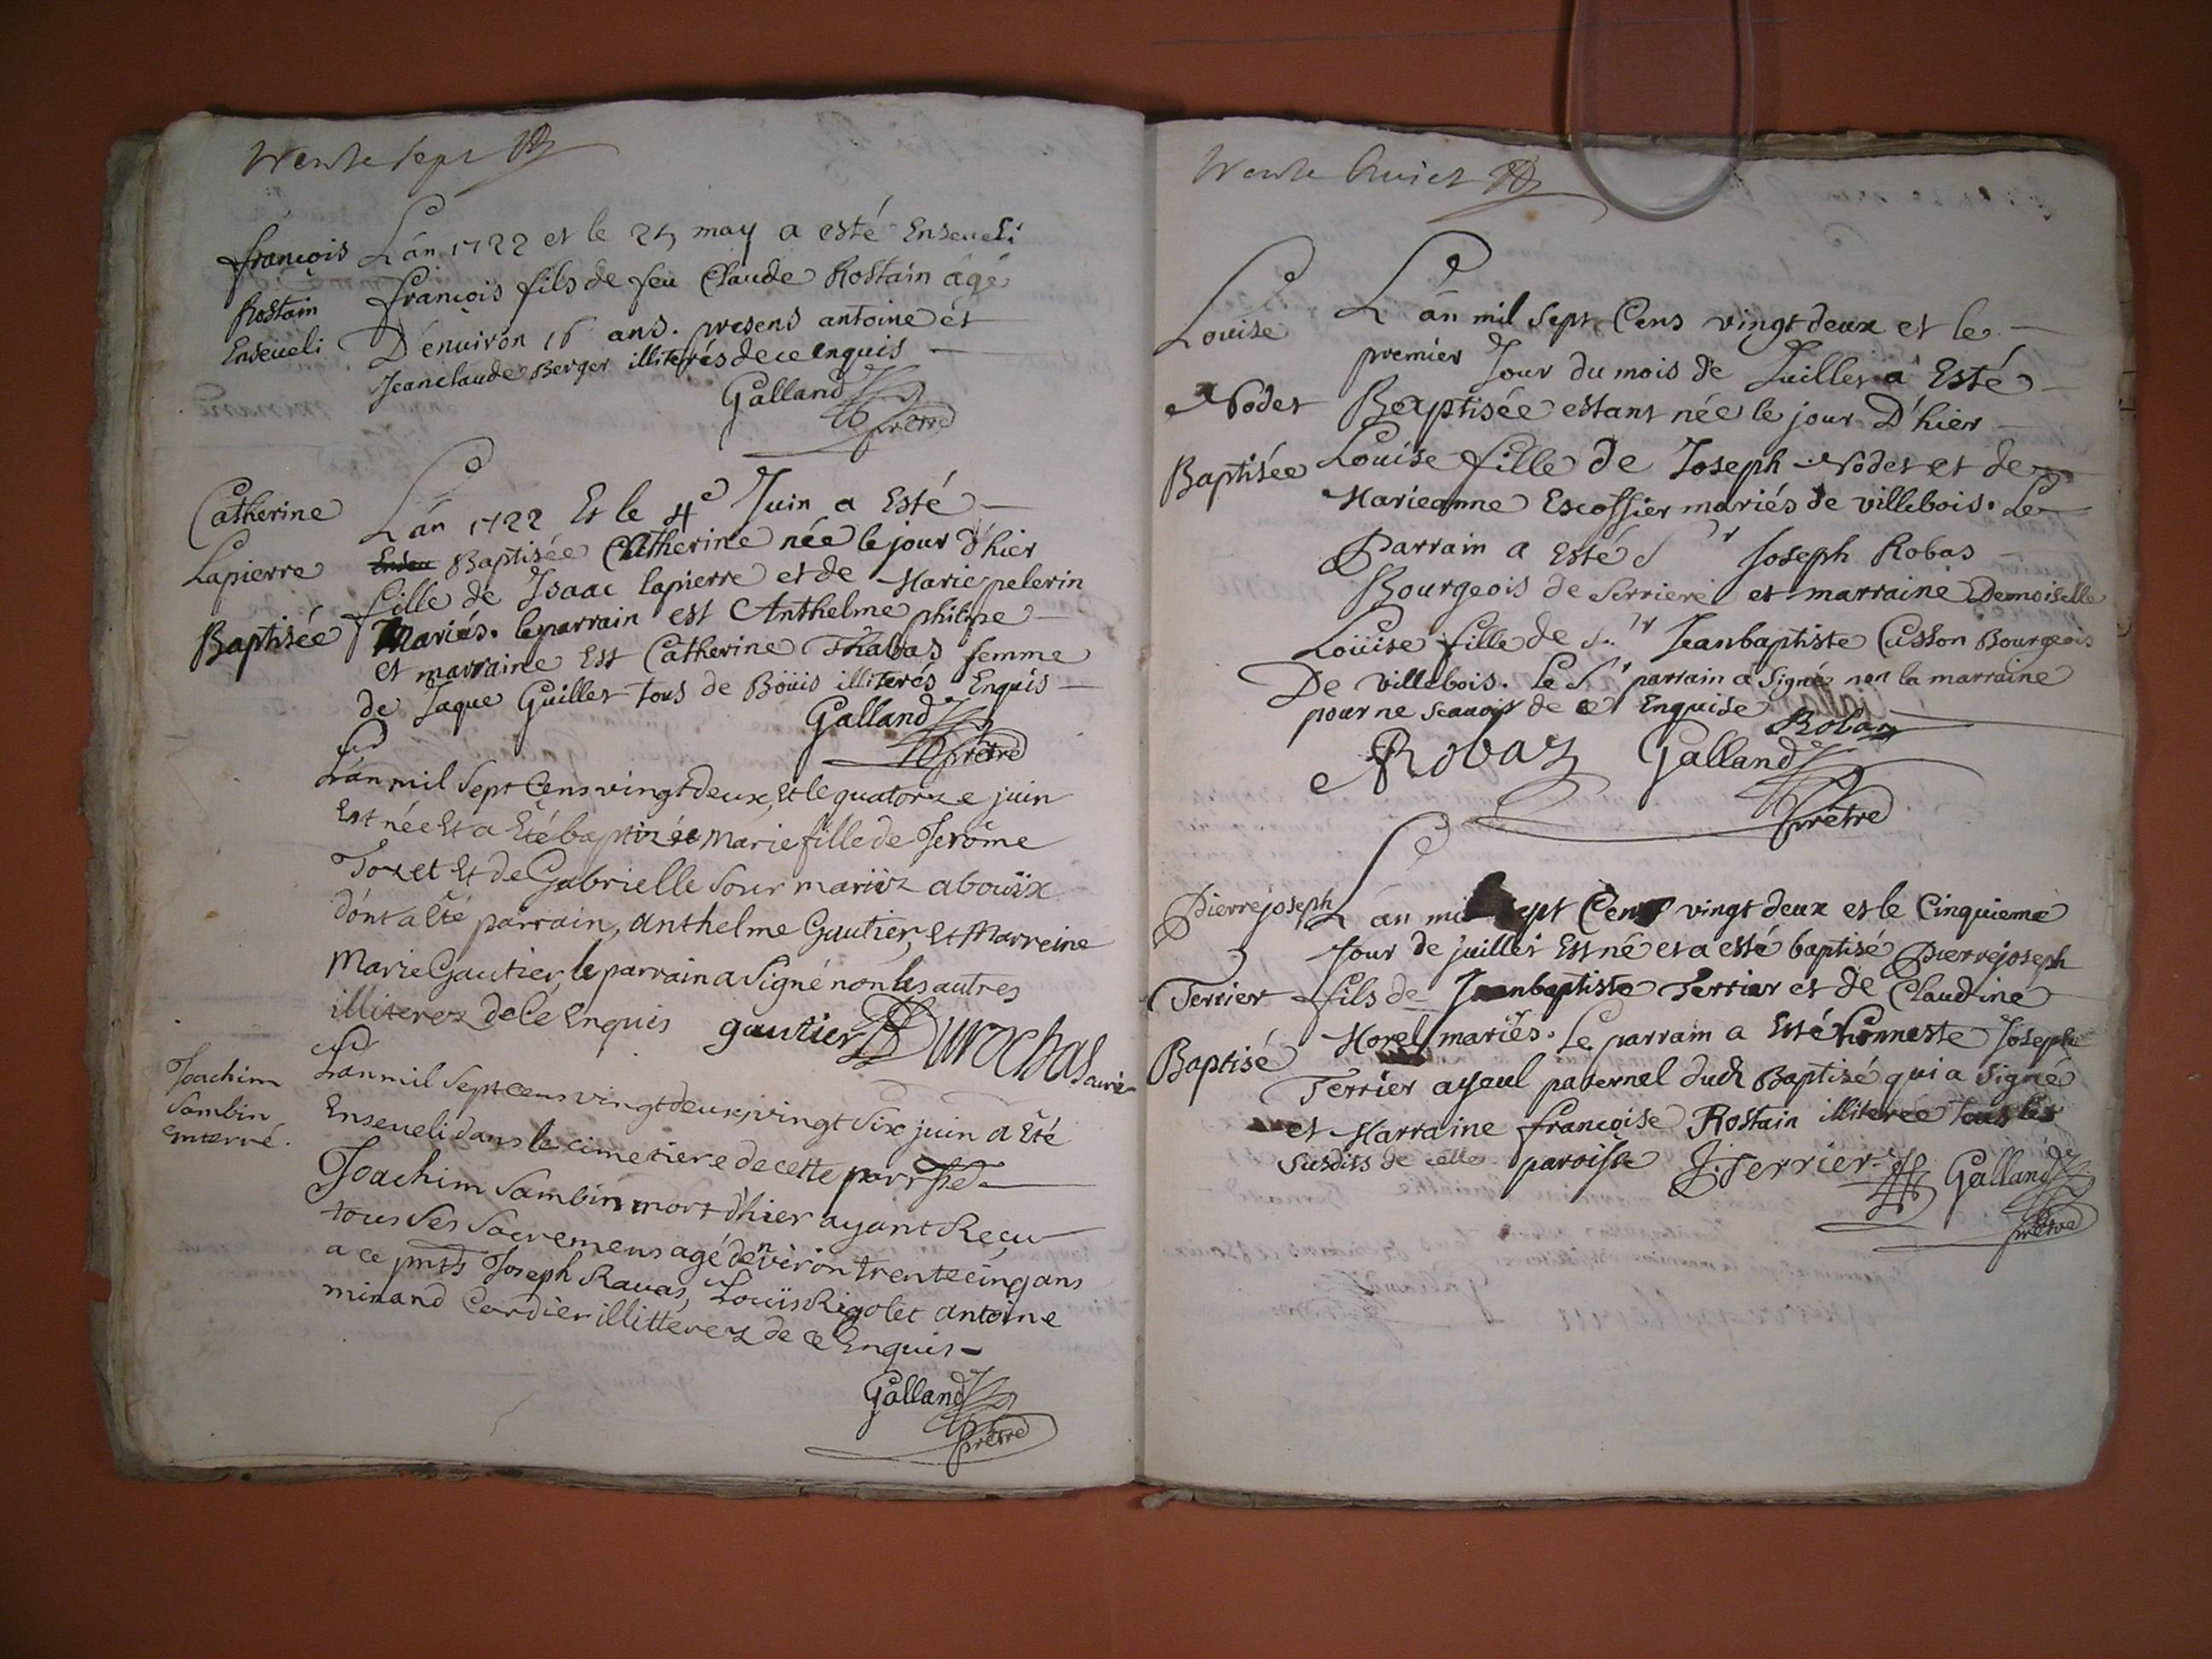 trente sept
françois
Rostain
Enseueli
L'an 1722 et le 25 may a esté Enseueli
françois fils de feu Claude Rostain agé
D'enuiron 16 ans. presens antoine et
Jeanclaude Berger illiterés de ce enquis
Galland
prêtre
Catherine
Lapierre
Baptisée
L'an 1722 Et le 4e Juin a Esté
Baptisée Catherine née le jour d'hier
fille de Isaac lapierre et de Marie pelerin
Mariés. le parrain est Anthelme philipe
et marraine Est Catherine Thabas femme
de Jaque Guillet tous de Boüis illiterés Enquis
Galland
prêtre
L'an mil Sept Cens vingt deux, et le quatorze juin
Est née et a Eté baptizée Marie fille de Jerôme
Tozet et de Gabrielle Sour mariéz a bouïx
dont a Eté parrain, anthelme Gautier, et Marreine
Marie Gautier, le parrain a Signé non les autres
illiterez de Cé Enquis gautier Durochas curé
Joachim
Sambin
enterré.
L'an mil Sept cens vingt deux, vingt Six juin a Eté
Enseueli dans le cimetiere de cette parrisse
Joachim Sambin mort d'hier ayant Reçu
tous Ses Sacremens agé denviron trente cinq ans
a ce pnts Joseph Rauas, Louïs Rigolet antoine
minand Cordier illitterez de ce Enquis
Galland
prêtre
trente huict
Louise
Nodet
Baptisée
L'an mil Sept Cens vingt deux et le
premier Jour du mois de Juillet a Esté
Baptisée estant née le jour D'hier
Louise fille de Joseph Nodet et de
Marieanne Escoffier mariés de villebois. Le
Parrain a Esté Sr Joseph Robas
Bourgeois de Serriere et marraine Demoiselle
Loüise fille de Sr Jeanbaptiste Casson Bourgeois
De villebois. Le Sr parrain a Signé non la marraine
pour ne scauoir de ce Enquise Robas
Robaz Galland
prêtre
Pierrejoseph
Terrier
Baptisé
L'an mil Sept Cens vingt deux et le Cinquieme
Jour de juillet Est né et a esté baptisé Pierrejoseph
fils de Jeanbaptiste Terrier et de Claudine
Morel mariés. Le parrain a Esté honneste Joseph
Terrier ayeul paternel dudt Baptisé qui a signé
et Marraine françoise Rostain illiterée tous les
susdits de celle paroisse J. Terrier Galland
prêtre